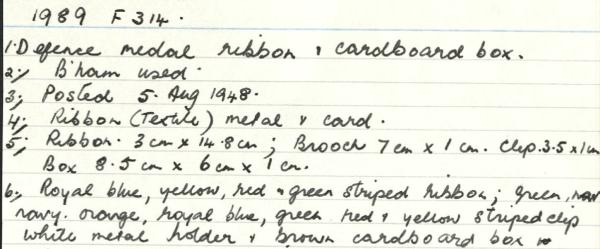 1989 F314.
1. Defence medal ribbon & cardboard box.
2; B'ham used.
3; Posted 5. Aug 1948.
4; Ribbon (Textile) metal & card.
5; Ribbon. 3cm x 14.8cm; Brooch 7cm x 1cm. Clip. 3.5 x 1cm
Box 8.5cm x 6cm x 1cm.
6; Royal blue, yellow, red & green striped ribbon; green,
navy. orange, royal blue, green red & yellow striped clip
white metal holder & brown cardboard box